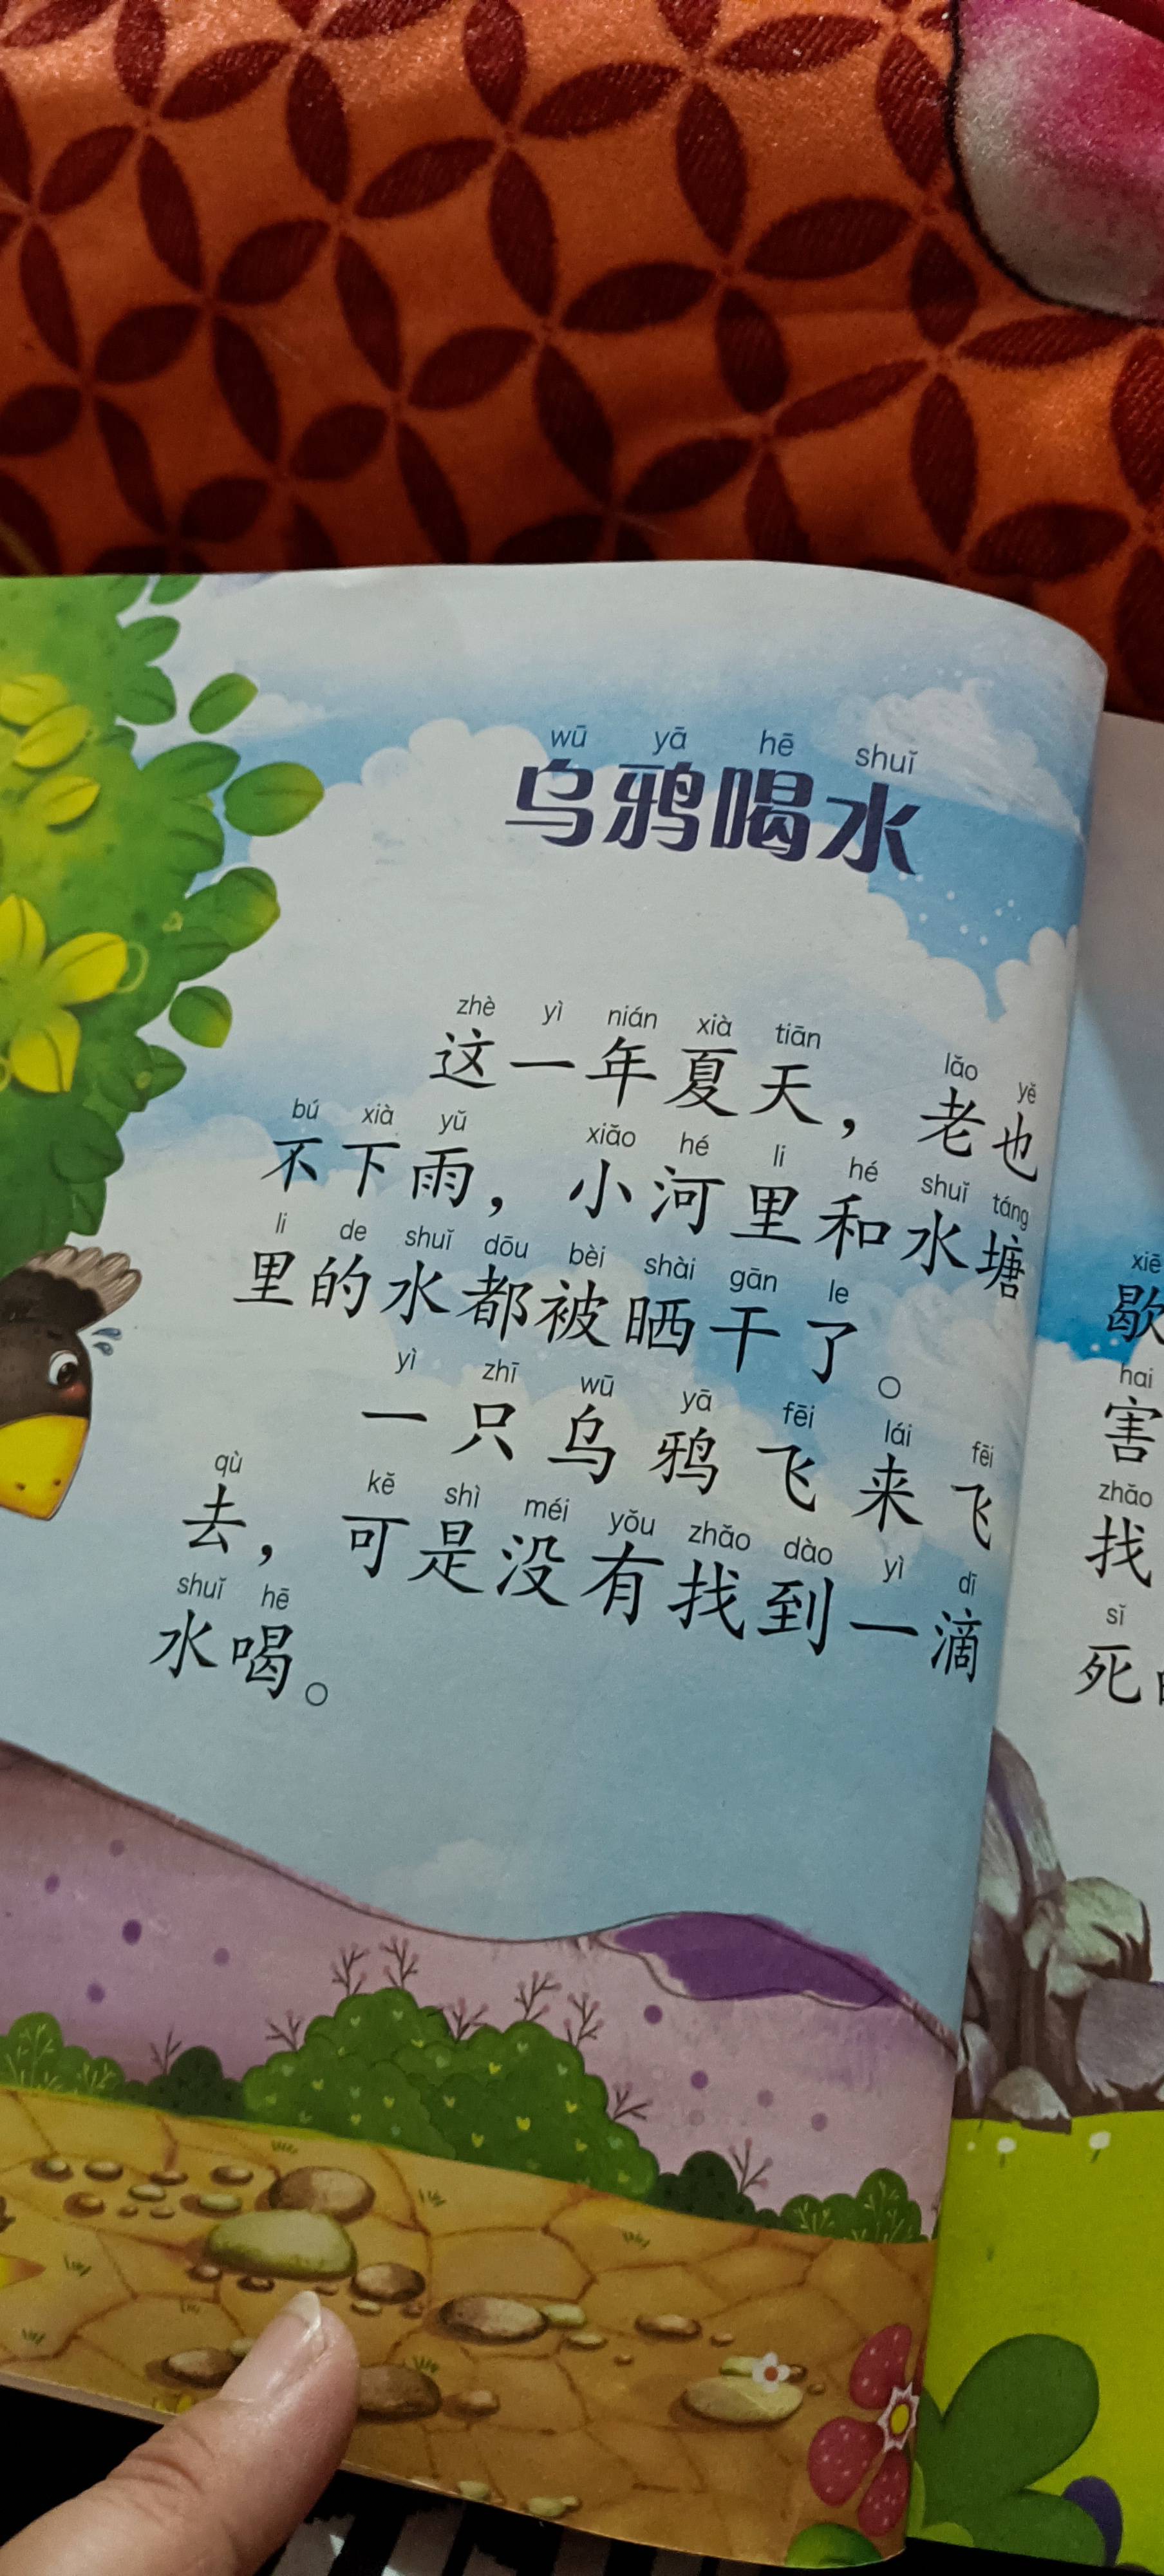 wū yā hē shuǐ
乌鸦喝水
zhè yì nián xià tiān lǎo yě
这一年夏天，老也
bú xià yǔ xiǎo hé li hé shuǐ táng
不下雨，小河里和水塘
li de shuǐ dōu bèi shài gān le
里的水都被晒干了。
yì zhī wū yā fēi lái fēi
一只乌鸦飞来飞
qù kě shì méi yǒu zhǎo dào yì dī
去，可是没有找到一滴
shuǐ hē
水喝。
xiē
歇
hai
害
zhǎo
找
sǐ
死